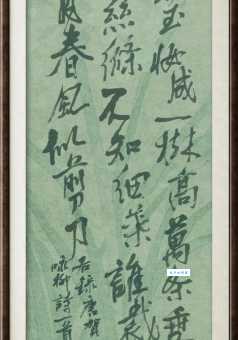 玉妝成一樹高萬條垂
絲絛不知細葉誰裁
春風似剪刀
右錄唐賀
詠柳詩一首